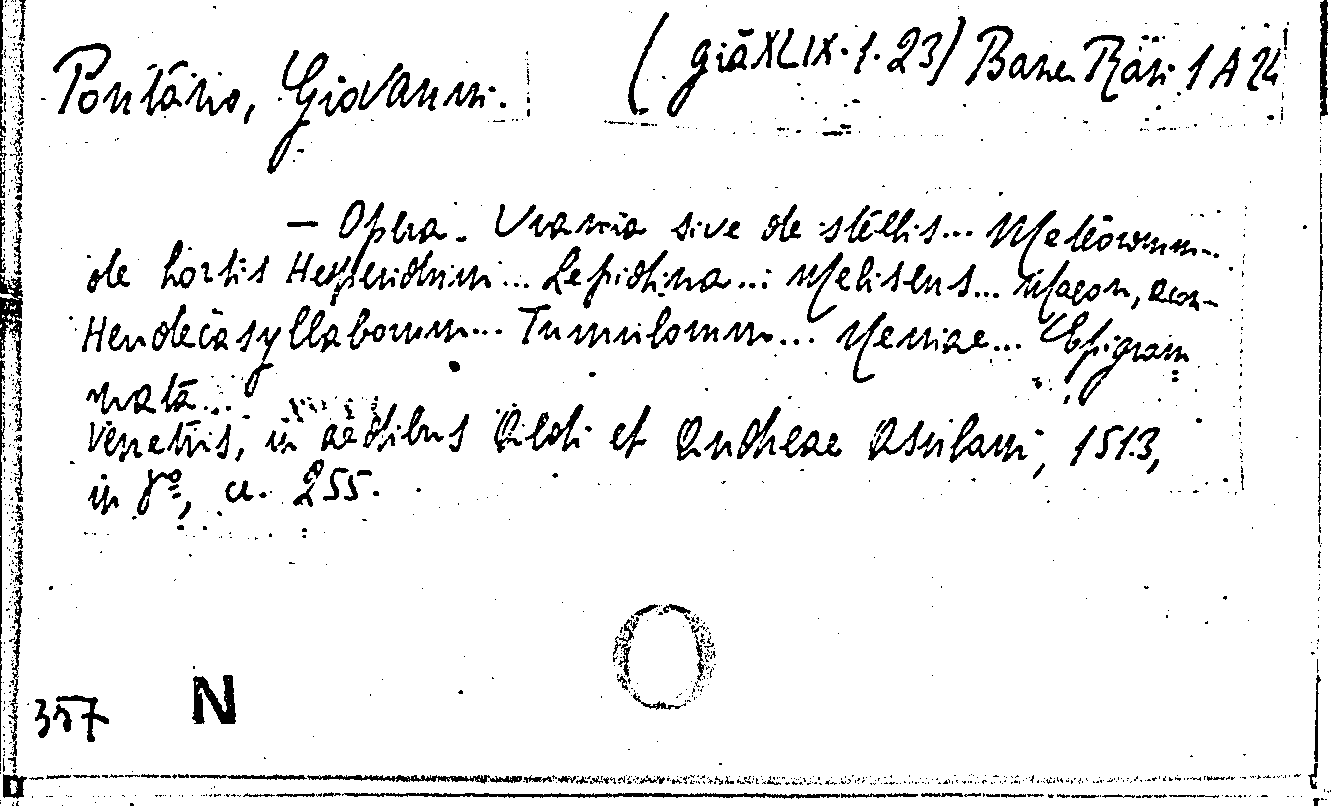 Pontano, Giovanni. (già XLIX.1.23) Banc. Rari 1 A 24
— Opera. Urania sive de stellis... Meteororum...
de hortis Hesperidum... Lepidina... Meliseus... Maeon, Acon-
Hendecasyllaborum... Tumulorum... Neniae... Epigram
mata...
Venetiis, in aedibus Aldi et Andreae Asulani, 1513,
in 8º, cc. 255.
357 N